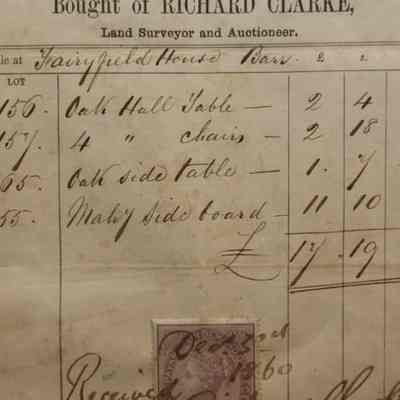 Bought of RICHARD CLARKE,
Land Surveyor and Auctioneer.
le at Fairyfield House Barr
LOT
156. Oak Hall Table — 2 4
157. 4 " chairs — 2 18
65. Oak side table — 1. 7
55. Mahy Side board — 11 10
£ 17. 19
Decr
1860
Received